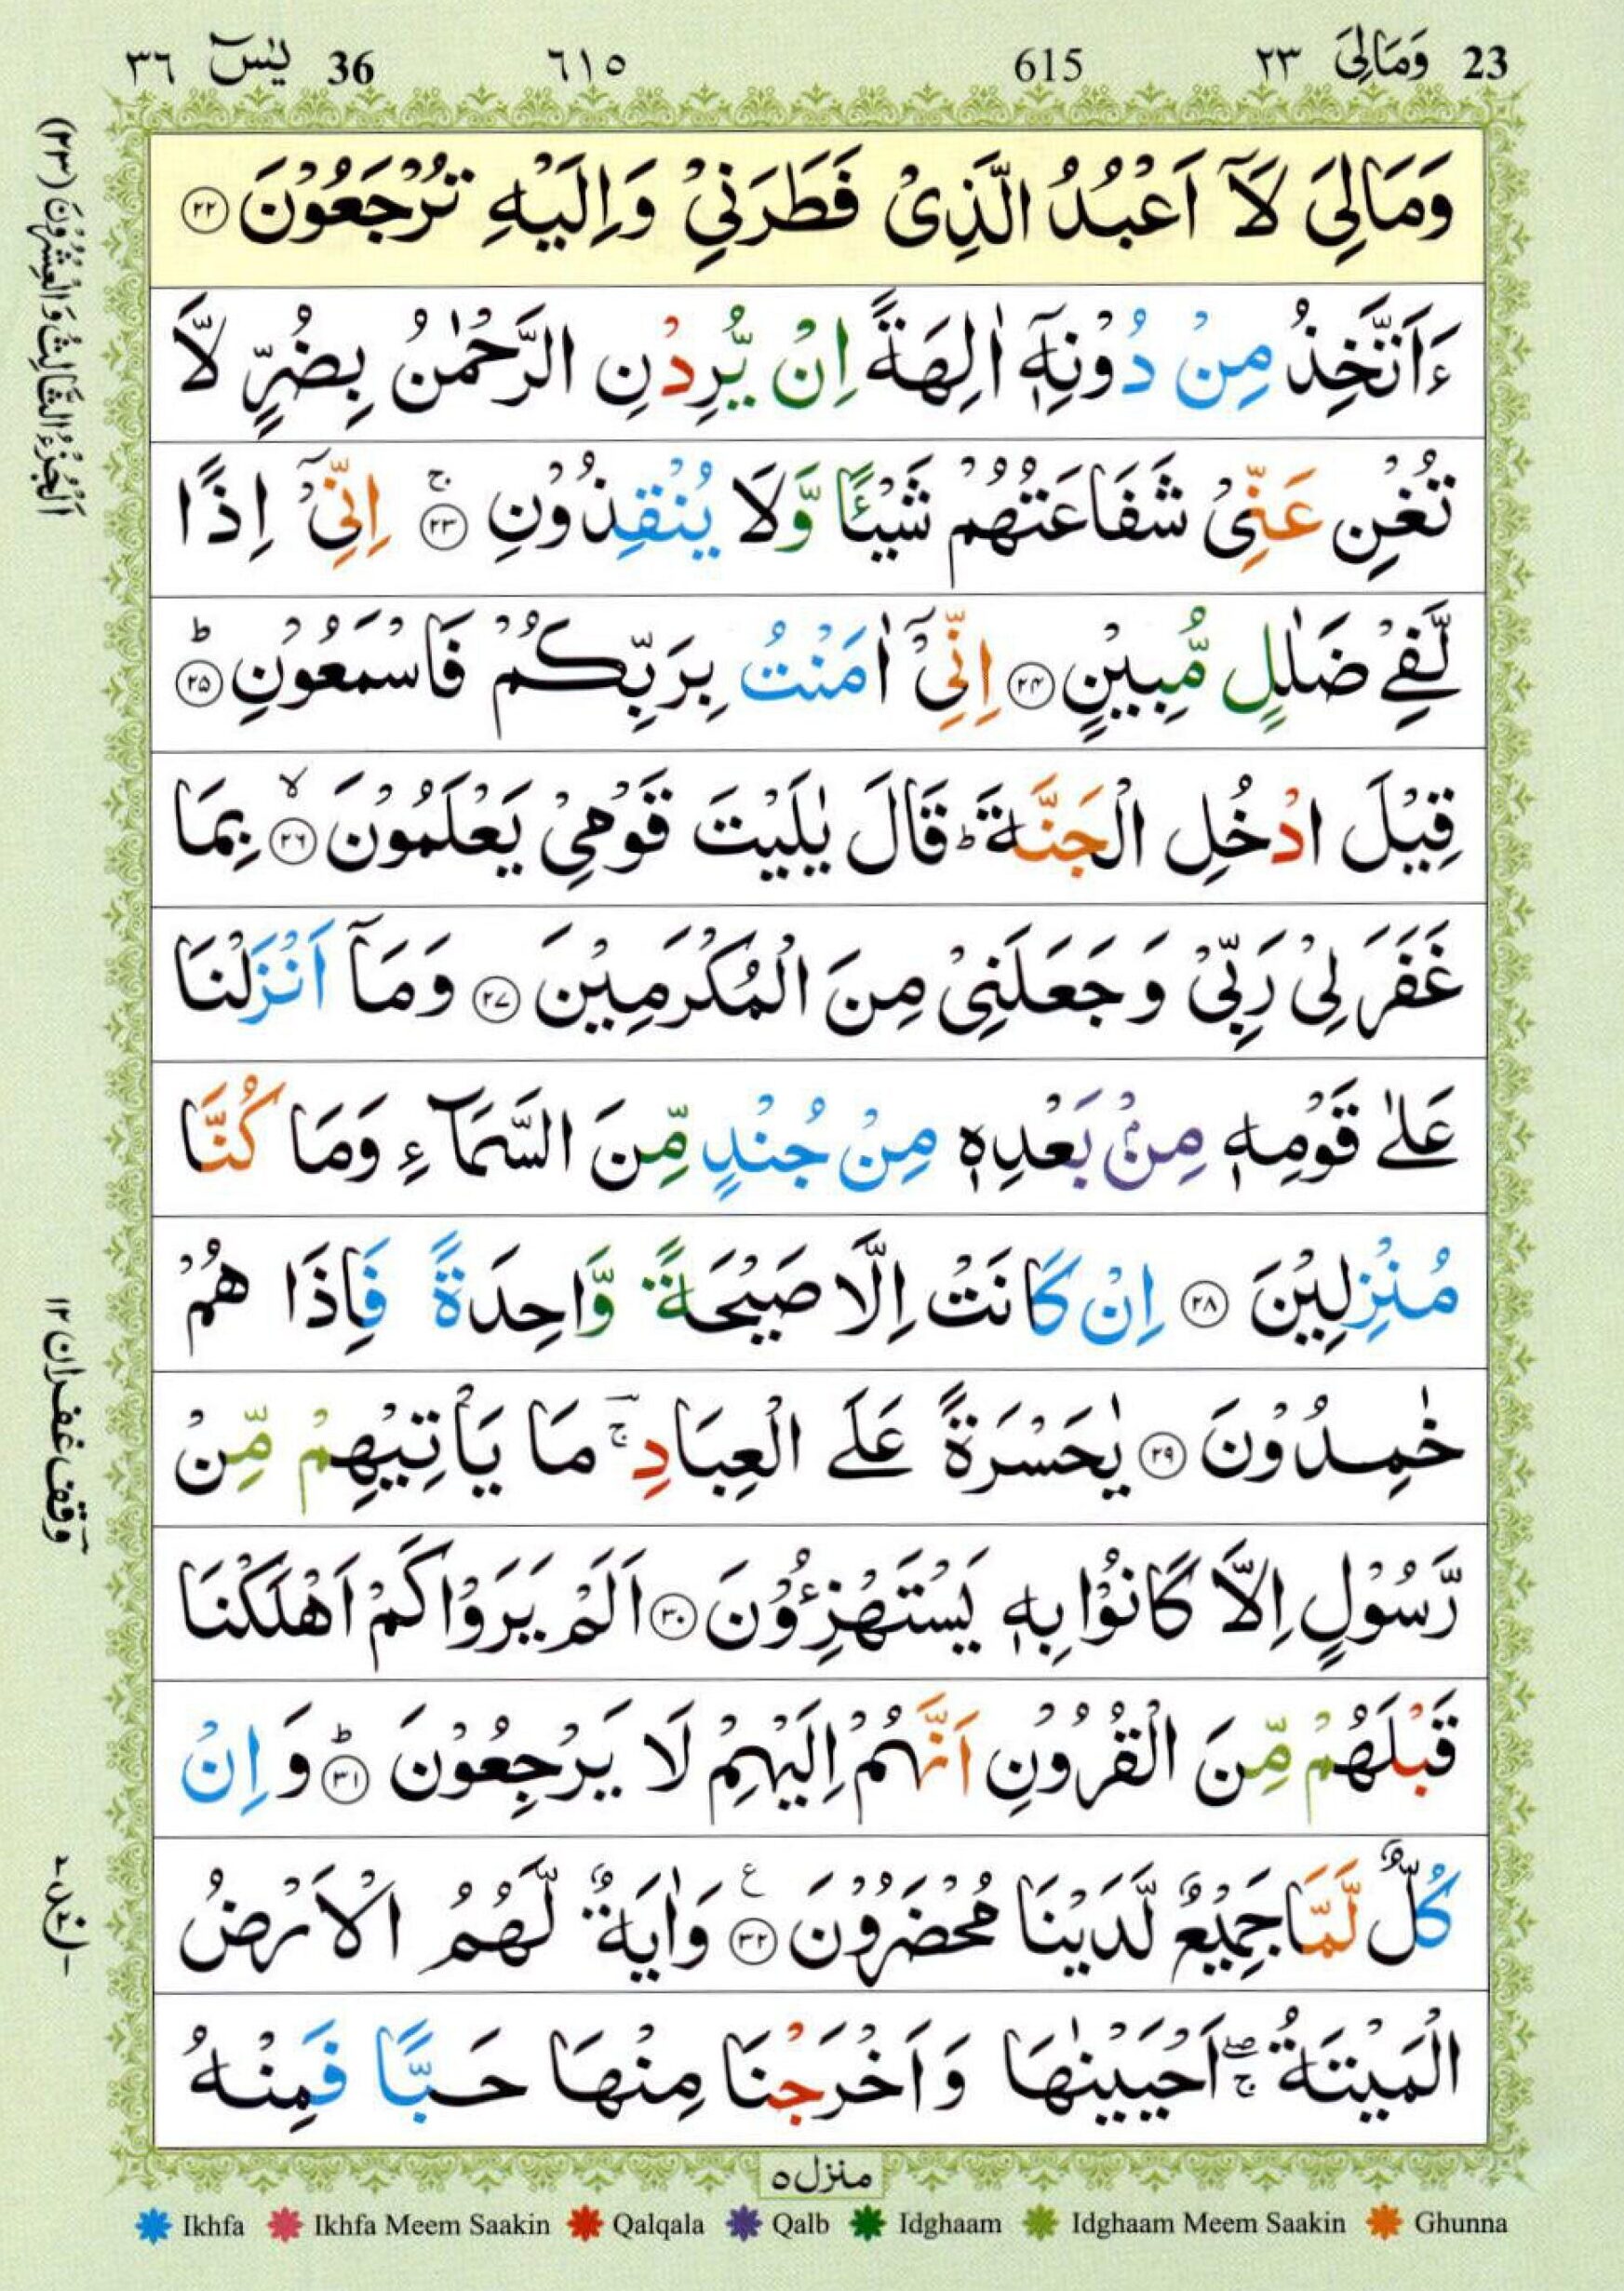 23 وَمَالِيَ ٢٣ 615 ٦١٥ 36 يٰسٓ ٣٦
وَمَالِيَ لَآ اَعْبُدُ الَّذِيْ فَطَرَنِيْ وَاِلَيْهِ تُرْجَعُوْنَ ۝٢٢
ءَاَتَّخِذُ مِنْ دُوْنِهٖٓ اٰلِهَةً اِنْ يُّرِدْنِ الرَّحْمٰنُ بِضُرٍّ لَّا
تُغْنِ عَنِّيْ شَفَاعَتُهُمْ شَيْـًٔا وَّلَا يُنْقِذُوْنِ ۝٢٣ۚ اِنِّيْٓ اِذًا
لَّفِيْ ضَلٰلٍ مُّبِيْنٍ ۝٢٤ اِنِّيْٓ اٰمَنْتُ بِرَبِّكُمْ فَاسْمَعُوْنِ ۝٢٥ؕ
قِيْلَ ادْخُلِ الْجَنَّةَ ؕ قَالَ يٰلَيْتَ قَوْمِيْ يَعْلَمُوْنَ ۝٢٦ۙ بِمَا
غَفَرَ لِيْ رَبِّيْ وَجَعَلَنِيْ مِنَ الْمُكْرَمِيْنَ ۝٢٧ وَمَآ اَنْزَلْنَا
عَلٰى قَوْمِهٖ مِنْۢ بَعْدِهٖ مِنْ جُنْدٍ مِّنَ السَّمَآءِ وَمَا كُنَّا
مُنْزِلِيْنَ ۝٢٨ اِنْ كَانَتْ اِلَّا صَيْحَةً وَّاحِدَةً فَاِذَا هُمْ
خٰمِدُوْنَ ۝٢٩ يٰحَسْرَةً عَلَى الْعِبَادِ ۚؔ مَا يَاْتِيْهِمْ مِّنْ
رَّسُوْلٍ اِلَّا كَانُوْا بِهٖ يَسْتَهْزِءُوْنَ ۝٣٠ اَلَمْ يَرَوْا كَمْ اَهْلَكْنَا
قَبْلَهُمْ مِّنَ الْقُرُوْنِ اَنَّهُمْ اِلَيْهِمْ لَا يَرْجِعُوْنَ ۝٣١ؕ وَ اِنْ
كُلٌّ لَّمَّا جَمِيْعٌ لَّدَيْنَا مُحْضَرُوْنَ ۝٣٢ۧ وَاٰيَةٌ لَّهُمُ الْاَرْضُ
الْمَيْتَةُ ۖۚ اَحْيَيْنٰهَا وَاَخْرَجْنَا مِنْهَا حَبًّا فَمِنْهُ
منزل ٥
Ikhfa Ikhfa Meem Saakin Qalqala Qalb Idghaam Idghaam Meem Saakin Ghunna
اَلْجُزْءُ الثَّالِثُ وَالْعِشْرُوْنَ (٢٣)
وقف غفران ١٢